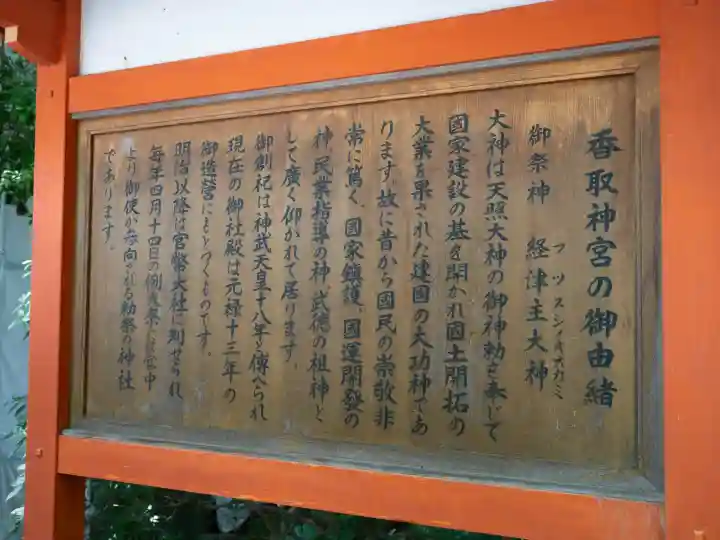 香取神宮の御由緒
御祭神　経津主大神
フツヌシノオオカミ
大神は天照大神の御神勅を奉じて
國家建設の基を開かれ國土開拓の
大業を果された建國の大功神であ
ります。故に昔から國民の崇敬非
常に篤く、國家鎮護、國運開發の
神、民業指導の神、武徳の祖神と
して廣く仰がれて居ります。
御創祀は神武天皇十八年と傳へられ
現在の御社殿は元禄十三年の
御造營にもとづくものです。
明治以降は官幣大社に列せられ
毎年四月十四日の例大祭には宮中
より御使が参向される勅祭の神社
であります。